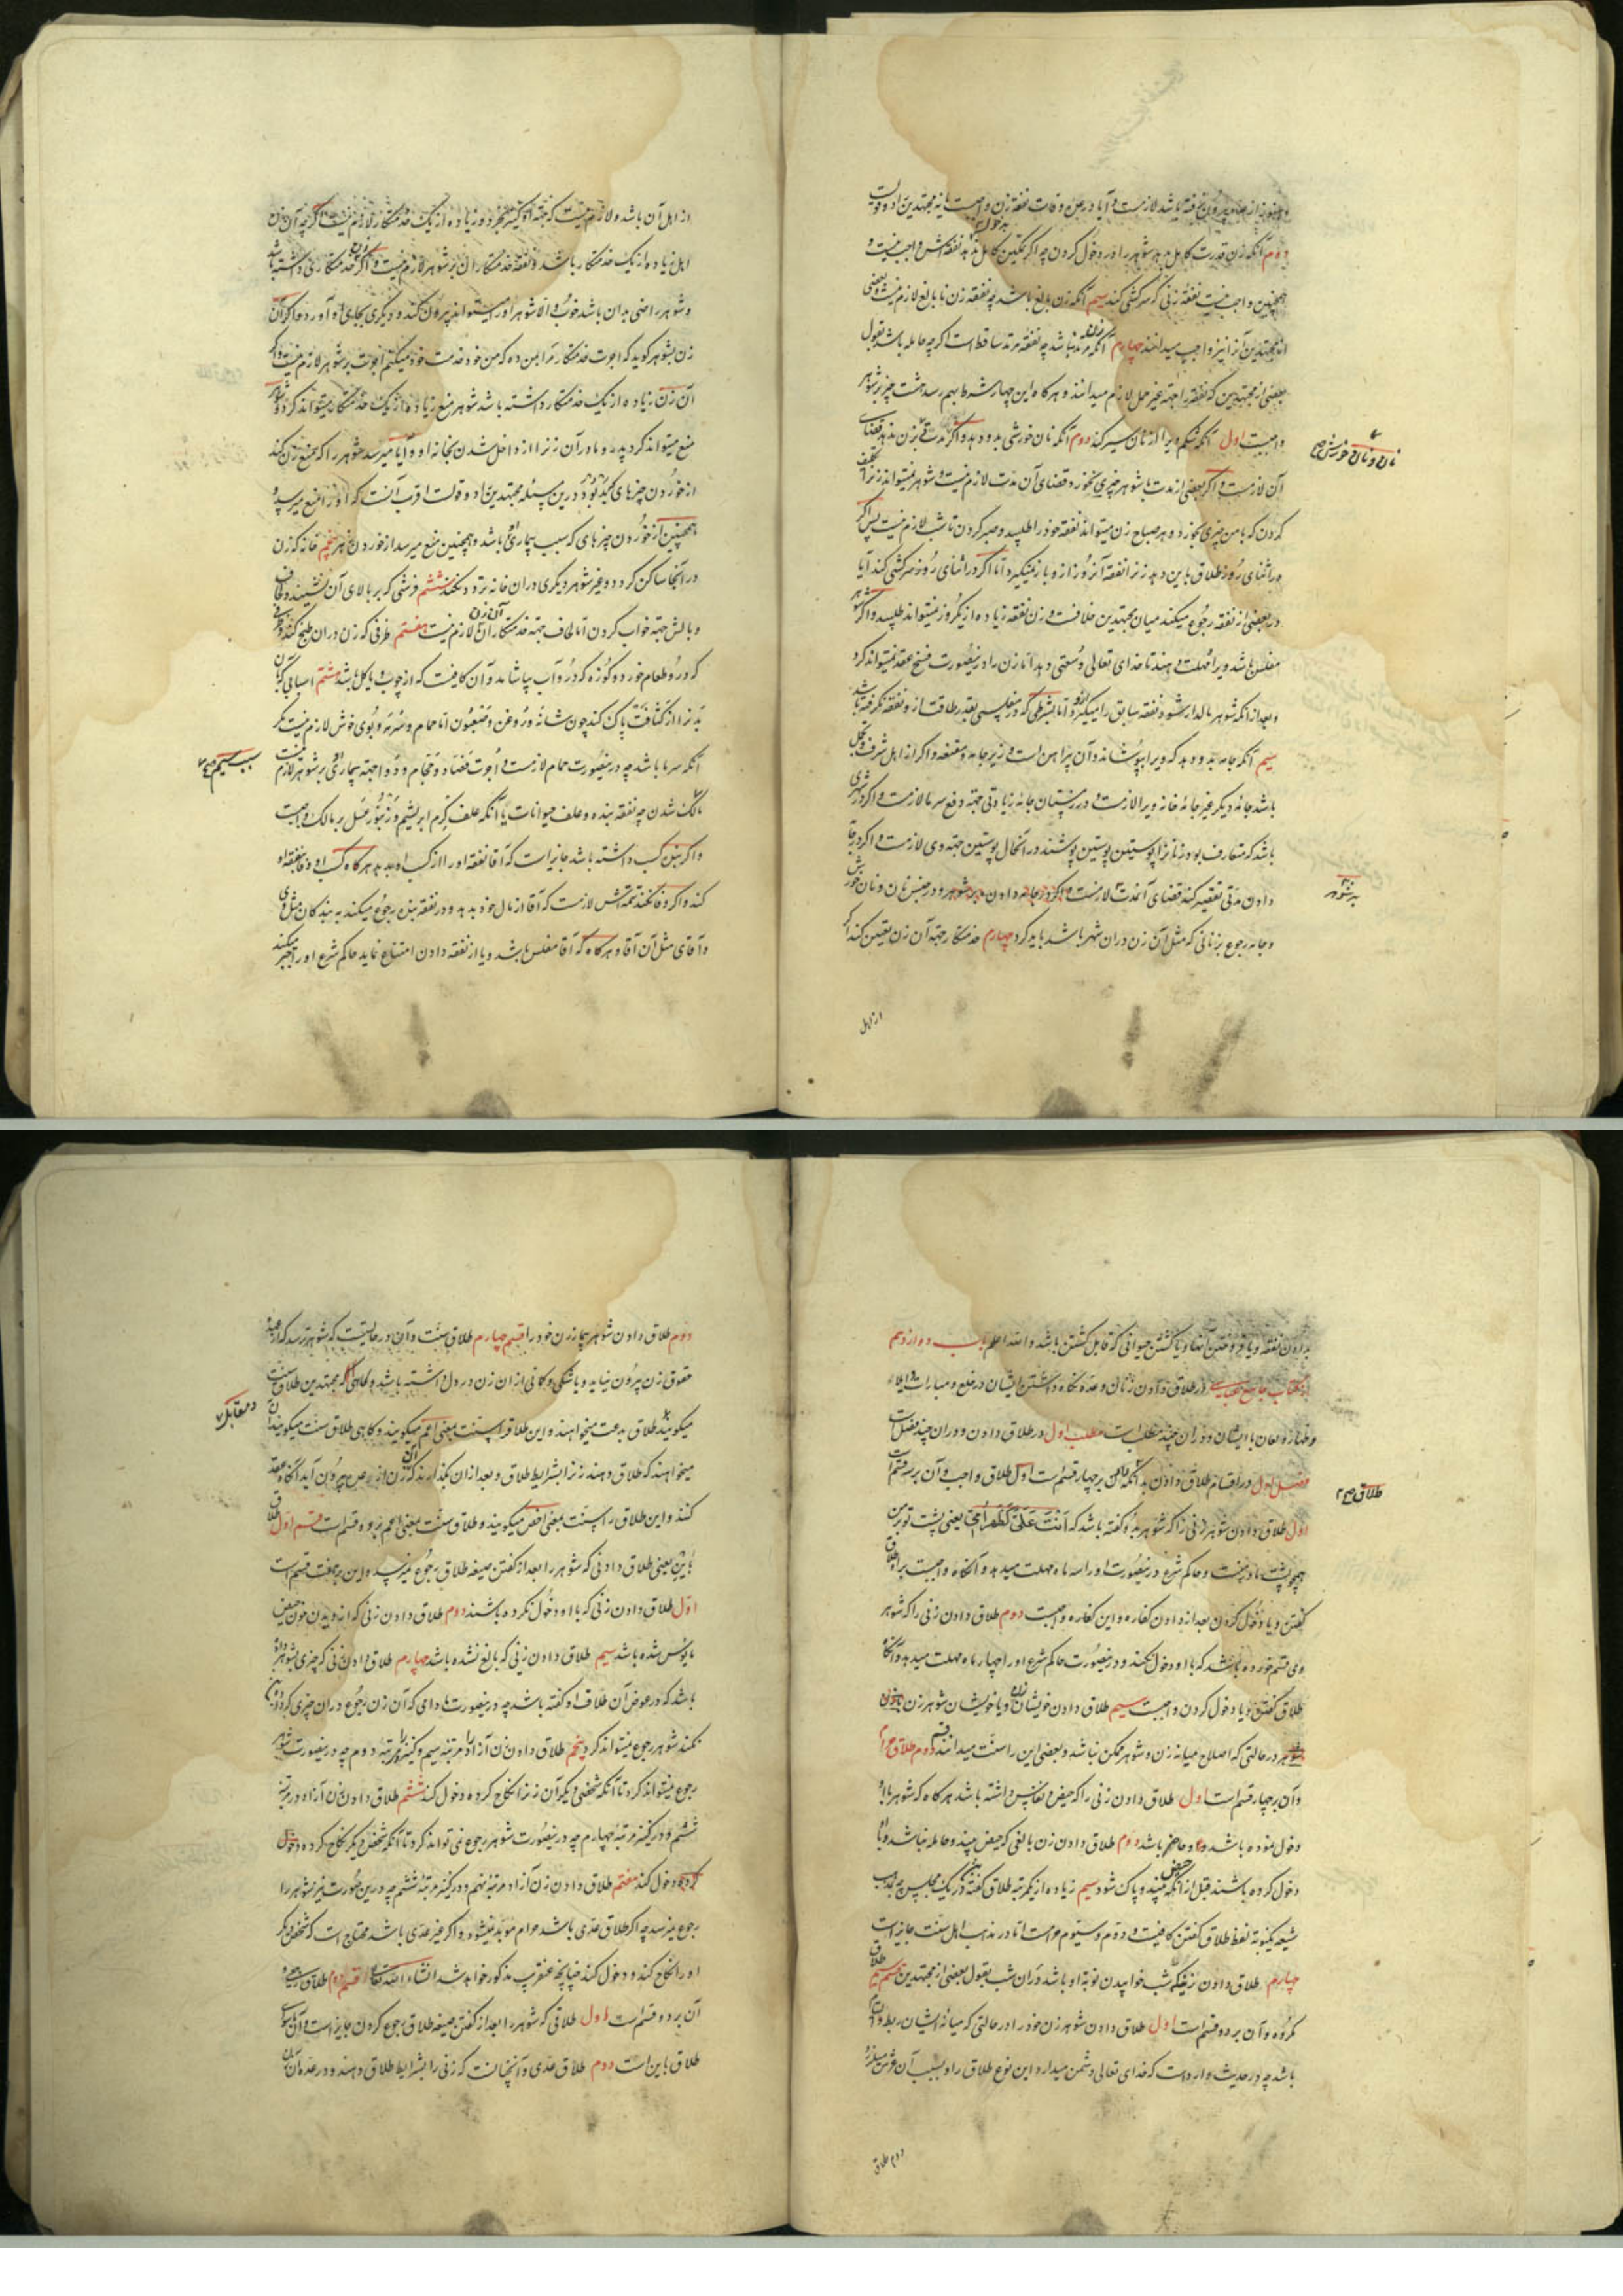 دوم آنکه زن قدرت کامل بدهد شوهر را در دخول کردن چه اگر تمکین کامل ندهد نفقه اش واجب نیست و
همچنین واجب نیست نفقهٔ زنی که سرکشی کند سیم آنکه زن بالغ باشد چه نفقه زن نابالغ لازم نیست و بعضی
از مجتهدین آنرا نیز واجب میدانند چهارم آنکه زن مرتد نباشد چه نفقه مرتد ساقط است اگر چه حامله باشد بقول
بعضی از مجتهدین که نفقه را جهة غیر حمل لازم میدانند و هر گاه این چهار شرط بهم رسد هشت چیز بر شوهر
واجبست اول آنکه شکم ویرا از نان سیر کند دوم آنکه نان خورشی بدو دهد و اگر مدتی بزن ندهد قضای
نان و نان خورش صح
آن لازمست و اگر بعضی از مدت با شوهر چیزی بخورد قضای آن مدت لازم نیست و شوهر نمیتواند زنرا تکلیف
کردن که با من چیزی بخورد و هر صباح زن میتواند نفقه خود را طلبید و صبر کردن تا شب لازم نیست پس اگر
در اثنای روز طلاق باین دهد زنرا نفقه آنروز از و باز نمیگیرد اما اگر در اثنای روز سرکشی کند آیا
در بعضی از نفقه رجوع میکند میان مجتهدین خلافست و زن نفقه زیاده از یکروز نمیتواند طلبید و اگر شوهر
مفلس باشد ویرا مهلت دهند تا خدای تعالی وسعتی دهد اما زن را درینصورت فسخ عقد نمیتواند کرد
و بعد از آنکه شوهر مالدار شود نفقه سابق را میگیرد اما بشرطی که در مفلسی بقدر طاقت از و نفقه نگرفته باشد
سیم آنکه جامه بدو دهد که ویرا بپوشاند و آن پیراهن است و زیر جامه و مقنعه و اگر از اهل شرف و تجمل
باشد جامه دیگر غیر جامهٔ خانه ویرا لازمست و در زمستان جامه زیادتی جهة دفع سرما لازمست و اگر در شهری
باشد که متعارف بود زنانرا پوستین پوشند در آنحال پوستین جهة وی لازمست و اگر در جامه
دادن مدتی تقصیر کند قضای آنمدت لازمست و اگر در جامه دادن بر شوهر و در جنس نان و نان خورش
و جامه رجوع بزنانی که مثل آن زن در ان شهر باشد باید کرد چهارم خدمتکار جهة آن زن تعیین کند اگر
از اهل
از اهل آن باشد و لازم نیست که جهة او کنیز بخرد و زیاده از یک خدمتکار لازم نیست اگر چه آن زن
اهل زیاده از یک خدمتکار باشد و نفقه خدمتکار ان بر شوهر لازم نیست و اگر زن خدمتکاری داشته باشد
و شوهر راضی بدان باشد خوب و الا شوهر او را میتواند بیرون کند و دیگری بجای او آورد و اگر آن
زن بشوهر گوید که اجرت خدمتکار مرا بمن ده که من خود خدمت خود میکنم اجرت بر شوهر لازم نیست و اگر
آن زن زیاده از یک خدمتکار داشته باشد شوهر منع زیاده از یک خدمتکار میتواند کرد و شوهر
منع میتواند کرد پدر و مادر آن زنرا از داخل شدن بخانه او و آیا میرسد شوهر را که منع زن کند
از خوردن چیزهای گنده بود درین مسئله مجتهدین را دو قولست اقرب آنست که او را منع میرسد و
همچنین از خوردن چیزهای که سبب بیماری او باشد و همچنین منع میرسد از خوردن زهر پنجم خانه که زن
در آنجا ساکن گردد و غیر شوهر دیگری در ان خانه تردد نکند ششم فرشی که بر بالای آن نشیند و لحاف
و بالش جهة خواب کردن اما لحاف جهة خدمتکار آن زن لازم نیست هفتم ظرفی که زن در ان طبخ کند و ظرفی
که در و طعام خورد و کوزه که در و آب بیاشامد و آن کافیست که از چوب و یا کل باشد هشتم اسبابی که بآن
بدنرا از کثافت پاک کند چون شانه و روغن و صابون اما حمام و سرمه و بوی خوش لازم نیست مگر
آنکه سرما باشد چه درینصورت حمام لازمست و اجرت فصاد و حجام و دوا جهة بیماری او بر شوهر لازم نیست
سبب سیم صح
مالک شدن چه نفقه بنده و علف حیوانات یا آنکه علف کرم ابریشم و زنبور عسل بر مالک واجبست
و اگر بنده کسب داشته باشد جایز است که آقا نفقه او را از کسب او بدهد هر گاه کسب او وفا بنفقه او
کند و اگر وفا نکند تتمه اش لازمست که آقا از مال خود بدهد و در نفقه بنده رجوع میکند به بندگان مثل وی
و آقای مثل آن آقا و هر گاه که آقا مفلس باشد و یا از نفقه دادن امتناع نماید حاکم شرع او را جبر میکند
بدادن نفقه و یا فروختن آنها و یا کشتن حیوانی که قابل کشتن باشد و الله اعلم باب دوازدهم
از کتاب جامع عباسی در طلاق دادن زنان و عده نگاه داشتن ایشان در خلع و مبارات و ایلاء
و ظهار و لعان با ایشان و در ان چند مطلب است مطلب اول در طلاق دادن و در ان چند فصل است
فصل اول در اقسام طلاق دادن بدانکه طلاق بر چهار قسم است اول طلاق واجب و آن بر سه قسم است
طلاق صح
اول طلاق دادن شوهر زنی را که شوهر بدو گفته باشد که انت علی کظهر امی یعنی پشت تو بر من
همچو پشت مادر منست و حاکم شرع درینصورت او را سه ماه مهلت میدهد و آنگاه واجبست بر او طلاق
گفتن و یا دخول کردن بعد از دادن کفاره و این کفاره واجبست دوم طلاق دادن زنی را که شوهر
وی قسم خورده باشد که با او دخول نکند و درینصورت حاکم شرع او را چهار ماه مهلت میدهد و آنگاه
طلاق گفتن و یا دخول کردن واجبست سیم طلاق دادن خویشان زن و یا خویشان شوهر زن
در حالتی که اصلاح میانه زن و شوهر ممکن نباشد و بعضی این را سنت میدانند قسم دوم طلاق حرام
و آن بر چهار قسم است اول طلاق دادن زنی را که حیض و نفاس داشته باشد هر گاه که شوهر با او
دخول نموده باشد و حاضر باشد دوم طلاق دادن زن بالغی که حیض بیند و حامله نباشد و با او
دخول کرده باشند قبل از آنکه حیض بیند و پاک شود سیم زیاده از یکمرتبه طلاق گفتن در یک مجلس چه بمذهب
شیعه یکنوبة لفظ طلاق گفتن کافیست و دوم و سیوم حرامست اما در مذهب اهل سنت جایز است
چهارم طلاق دادن زنی که شب خوابیدن نوبة او باشد در ان شب بقول بعضی از مجتهدین قسم سیم طلاق
مکروه و آن بر دو قسم است اول طلاق دادن شوهر زن خود را در حالتی که میانه ایشان ربط و التیام
باشد چه در حدیث وارد است که خدای تعالی دشمن میدارد این نوع طلاق را و بسبب آن عرش میلرزد
دوم طلاق
دوم طلاق دادن شوهر بیمار زن خود را قسم چهارم طلاق سنت و آن در حالیست که شوهر ترسد که از عهدهٔ
حقوق زن بیرون نیاید و یا شکی و گمانی از ان زن در دل داشته باشد و گاهی که مجتهدین طلاق سنت
میگویند مقابل طلاق بدعت میخواهند و این طلاق را سنت بمعنی اعم میگویند و گاهی طلاق سنت میگویند و آن
میخواهند که طلاق دهند زنرا بشرایط طلاق و بعد از ان بگذارند که آن زن از عده بیرون آید آنگاه عقد
کنند و این طلاق را سنت بمعنی اخص میگویند و طلاق سنت بمعنی اعم بر دو قسم است قسم اول طلاق
باین یعنی طلاق دادنی که شوهر را بعد از گفتن صیغه طلاق رجوع نمیرسد و این بر هفت قسم است
اول طلاق دادن زنی که با او دخول نکرده باشند دوم طلاق دادن زنی که از دیدن خون حیض
مایوس شده باشد سیم طلاق دادن زنی که بالغ نشده باشد چهارم طلاق دادن زنی که چیزی بشوهر داده
باشد که در عوض آن طلاق او گفته باشد چه درینصورت مادامی که آن زن رجوع در ان چیزی که داده
نکند شوهر رجوع نمیتواند کرد پنجم طلاق دادن زن آزاد را مرتبه سیم و کنیز را مرتبه دوم چه درینصورت شوهر
رجوع نمیتواند کرد تا آنکه شخصی دیگر آن زنرا نکاح کرده دخول کند ششم طلاق دادن زن آزاد در مرتبه
ششم و در کنیز مرتبه چهارم چه درینصورت شوهر رجوع نمی تواند کرد تا آنکه شخصی دیگر نکاح کرده دخول
کند هفتم طلاق دادن زن آزاد مرتبه نهم و در کنیز مرتبه ششم چه درین صورت نیز شوهر را
رجوع نمیرسد چه اگر طلاق عدی باشد حرام مؤبد میشود و اگر غیر عدی باشد محتاج است که شخص دیگر
او را نکاح کند و دخول کند چنانچه عنقریب مذکور خواهد شد انشاء الله تعالی قسم دوم طلاق رجعی و
آن بر دو قسم است اول طلاقی که شوهر را بعد از گفتن صیغه طلاق رجوع کردن جایز است و آن ماسوای
طلاق باین است دوم طلاق عدی و آنچنانست که زنی را بشرایط طلاق دهند و در عده آن